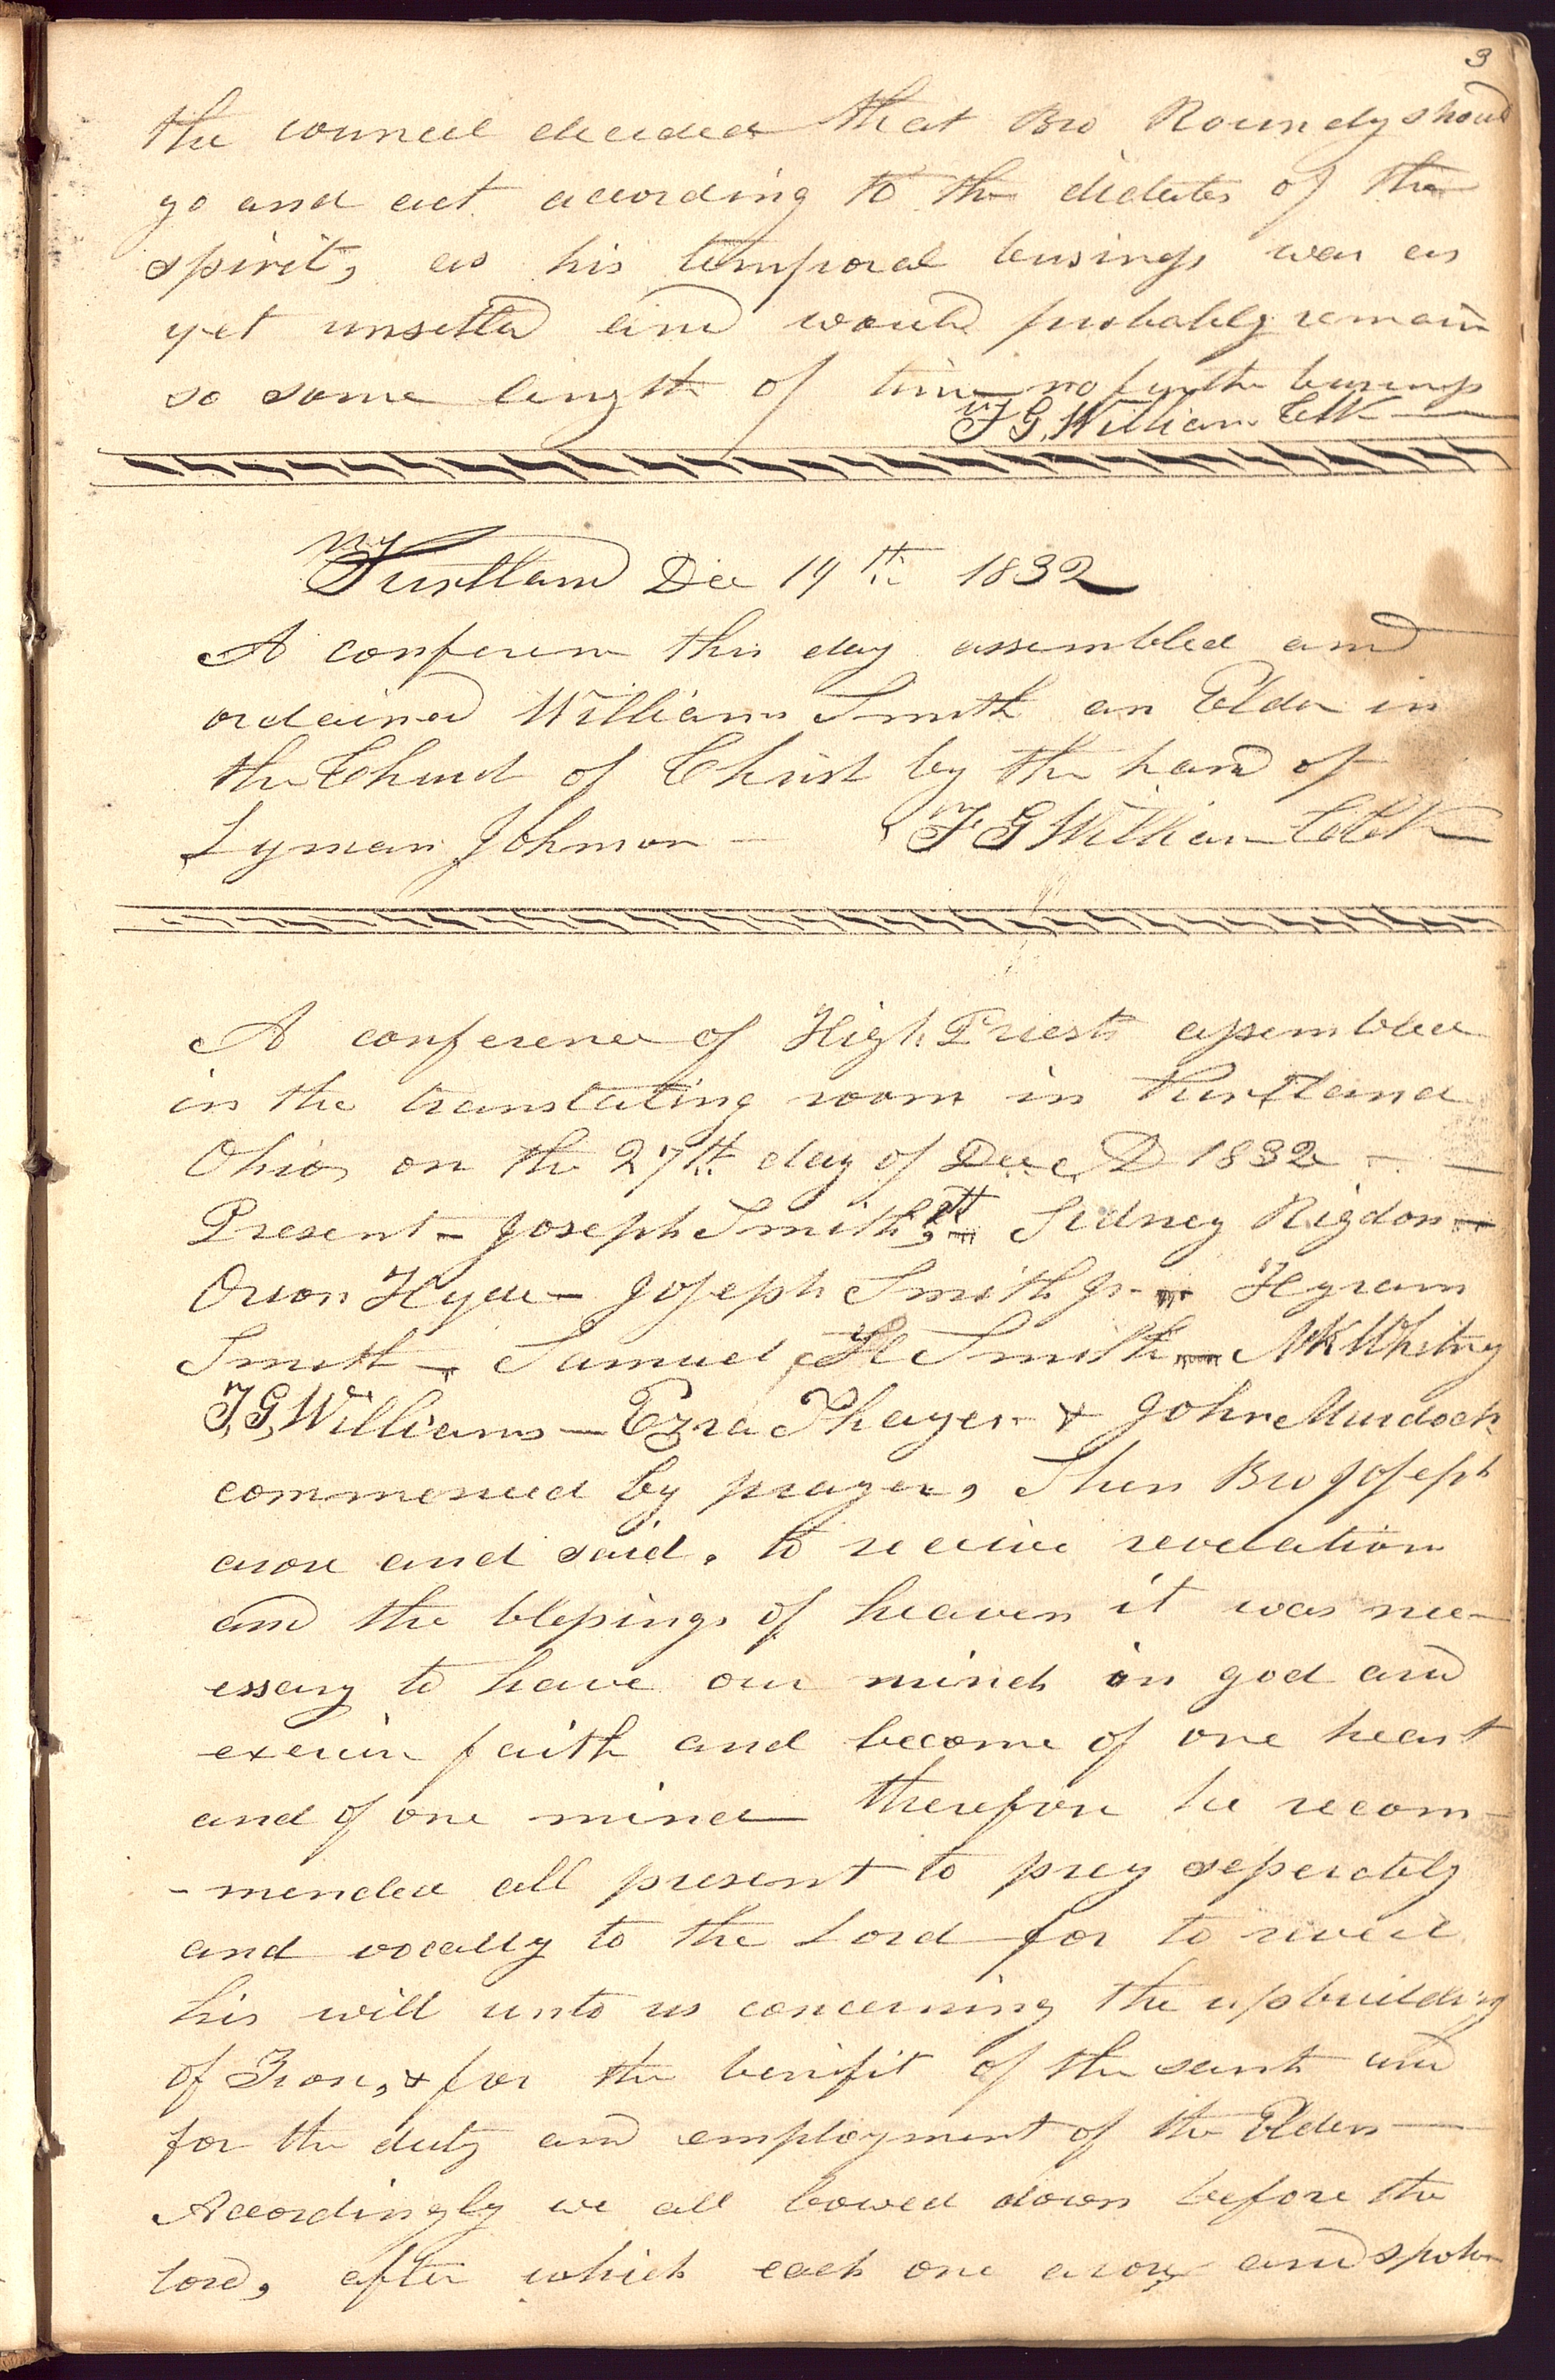 3
the council decided that Bro Roundy should
go and act according to the dictates of the
spirit, as his temporal business was as
yet unsettled and would probably remain
so some length of time no further business
F. G. Williams Clk
Kirtland Dec 19th 1832
A conference this day assembled and
ordained William Smith an Elder in
the Church of Christ by the hand of
Lyman Johnson — F G Williams Clerk
A conference of High Priests assembled
in the translating room in Kirtland
Ohio on the 27th day of Dec AD 1832 —
Present — Joseph Smith, Sidney Rigdon —
Orson Hyde — Joseph Smith Jr — Hyram
Smith — Samuel H Smith — N K Whitney
F. G. Williams — Ezra Thayer & John Murdock
commenced by prayer, Then Bro Joseph
arose and said, to receive revelation
and the blessings of heaven it was nec-
essary to have our minds on god and
exercise faith and become of one heart
and of one mind therefore he recom-
-mended all present to pray seperately
and vocally to the Lord for to reveal
his will unto us concerning the upbuilding
of Zion, & for the benifit of the saints and
for the duty and employment of the Elders —
Accordingly we all bowed down before the
Lord, after which each one arose and spoke